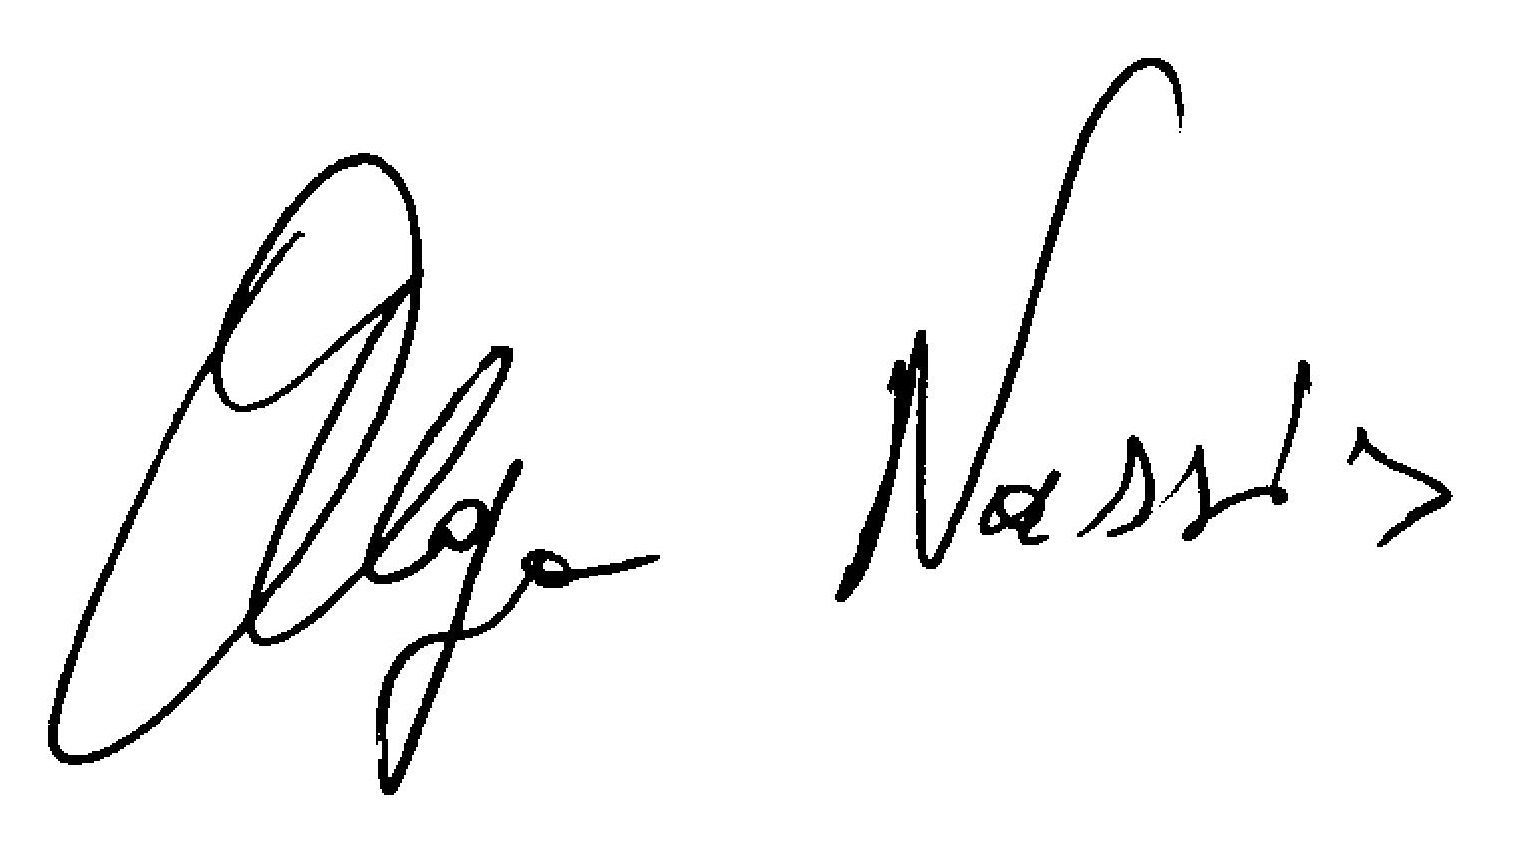 Olga Nassis